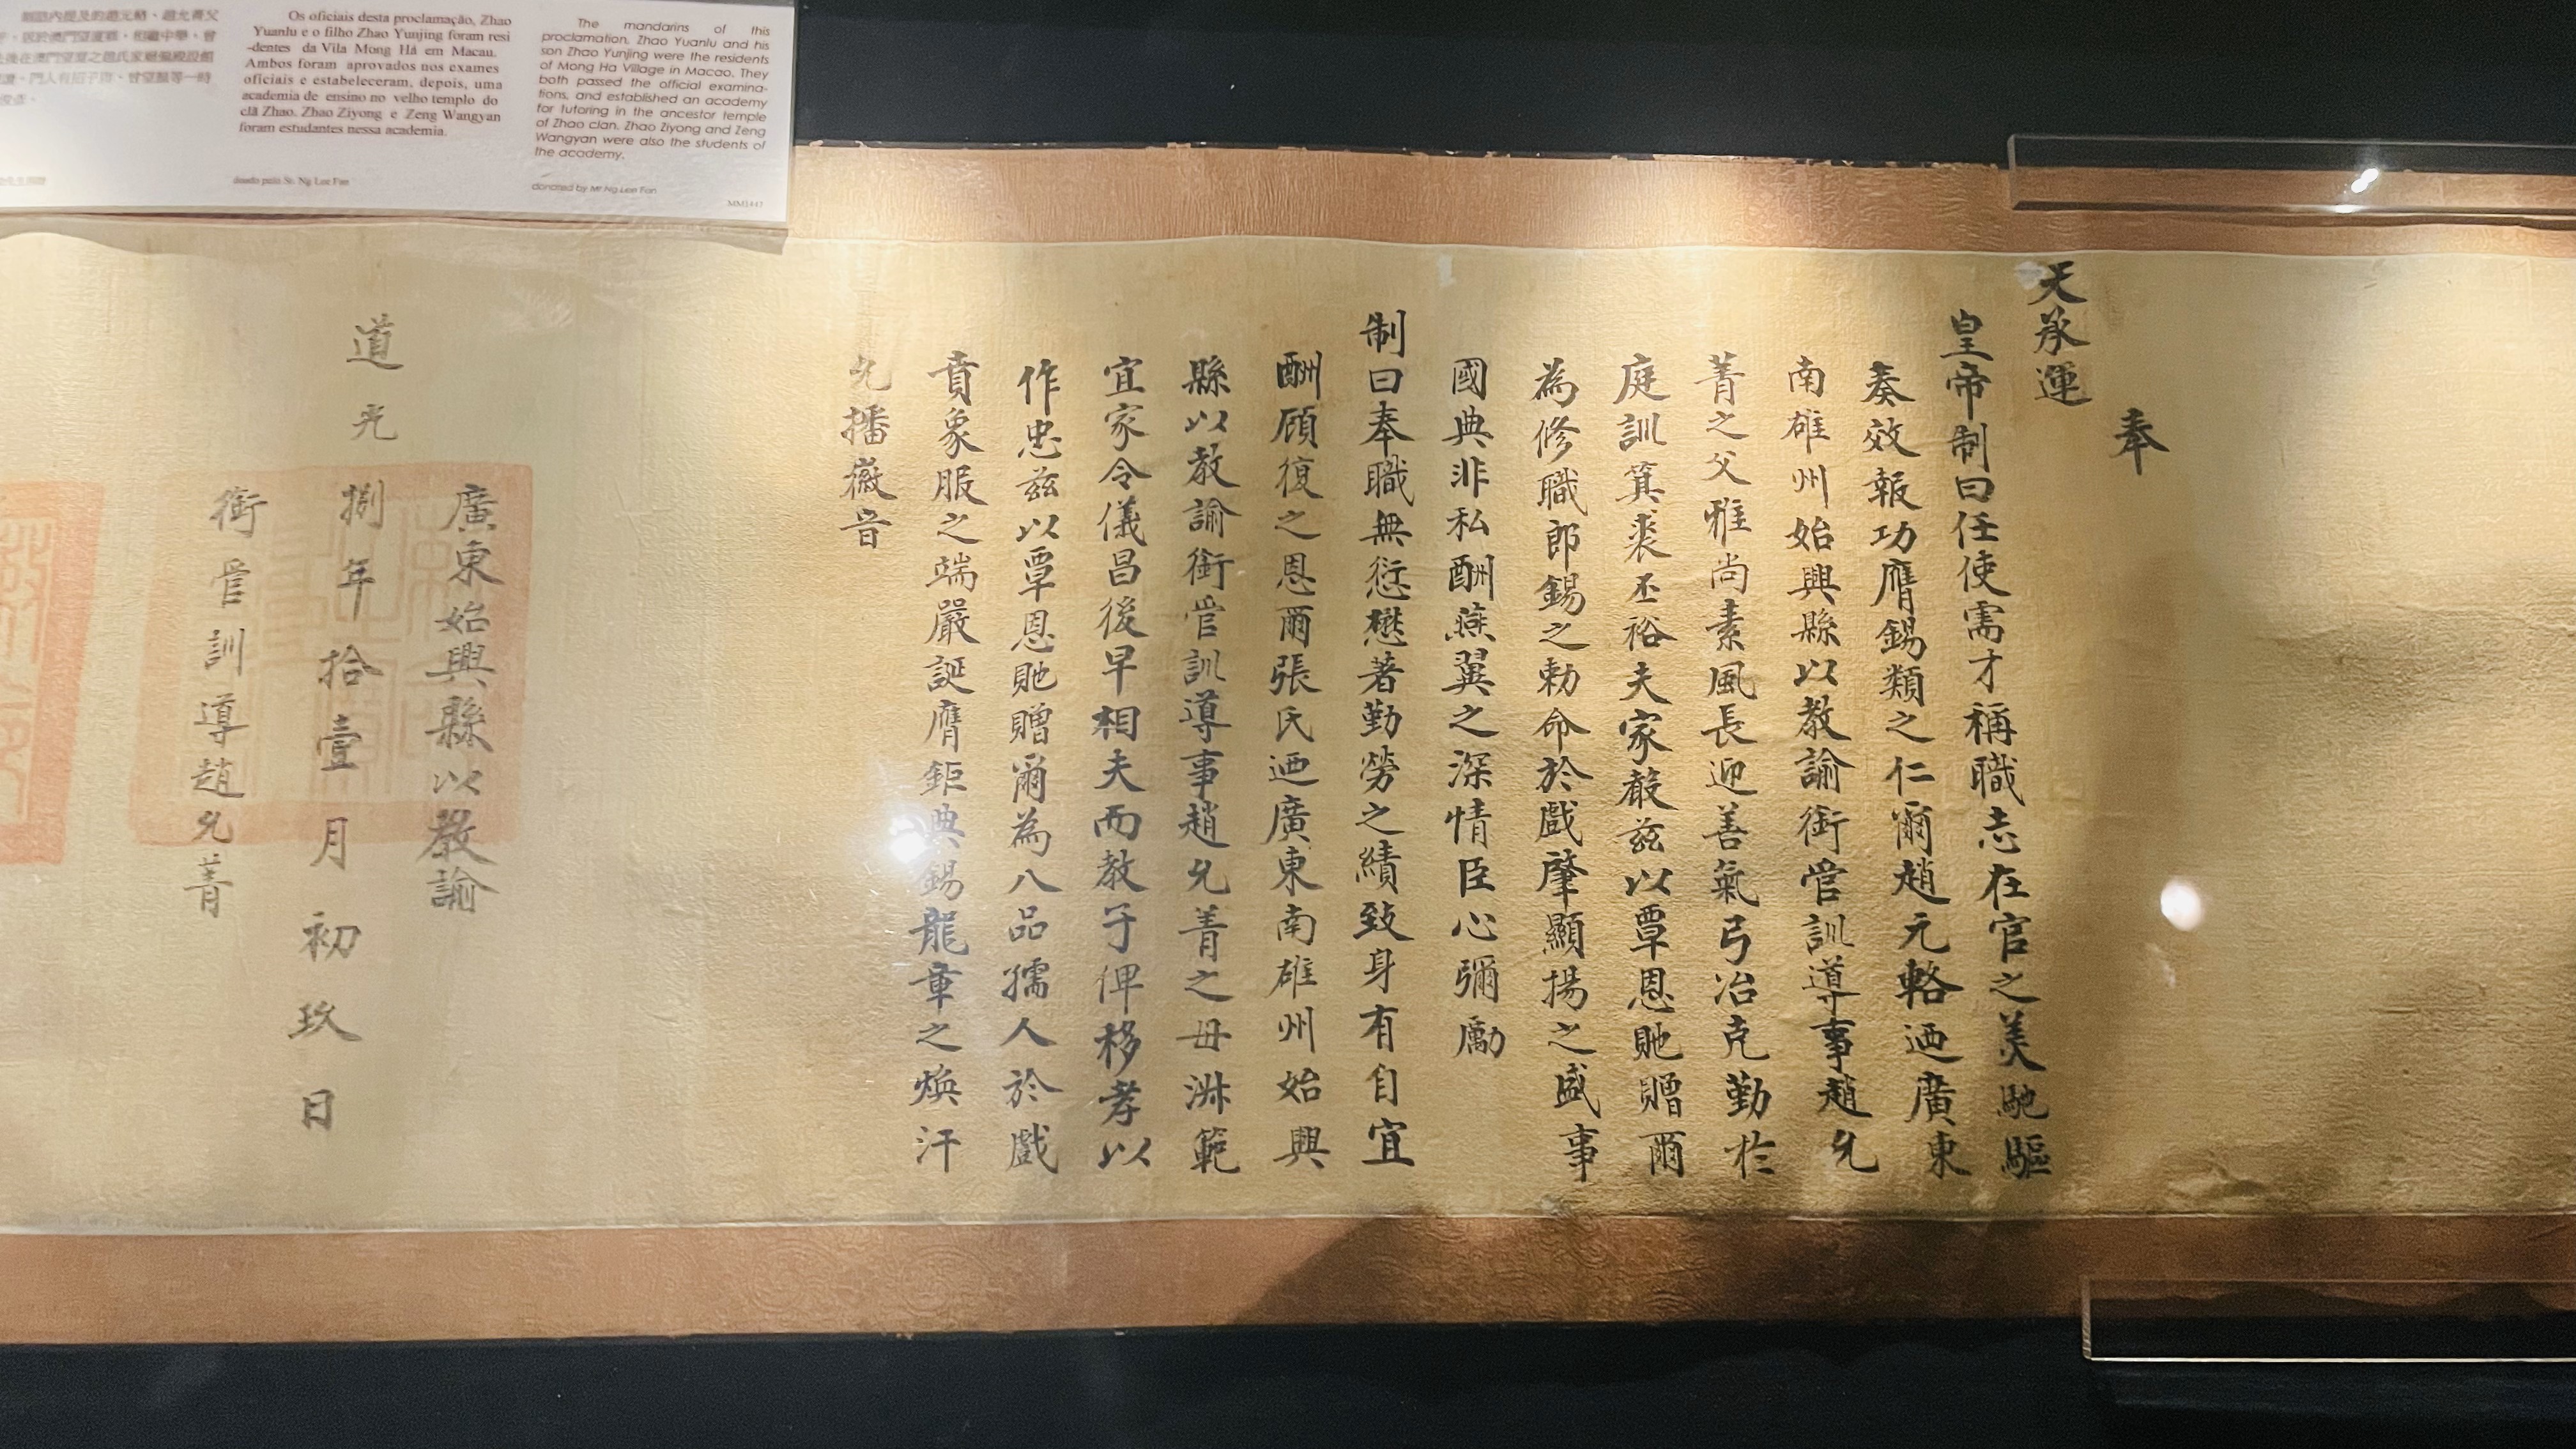 Os oficiais desta proclamação, Zhao
Yuanlu e o filho Zhao Yunjing foram resi
-dentes da Vila Mong Há em Macau.
Ambos foram aprovados nos exames
oficiais e estabeleceram, depois, uma
academia de ensino no velho templo do
clã Zhao. Zhao Ziyong e Zeng Wangyan
foram estudantes nessa academia.
doado pelo Sr. Ng Lee Fan
The mandarins of this
proclamation, Zhao Yuanlu and his
son Zhao Yunjing were the residents
of Mong Ha Village in Macao. They
both passed the official examina-
tions, and established an academy
for tutoring in the ancestor temple
of Zhao clan. Zhao Ziyong and Zeng
Wangyan were also the students of
the academy.
donated by Mr Ng Lee Fan
MM1447
奉
天承運
皇帝制曰任使需才稱職志在官之美馳驅
奏效報功膺錫類之仁爾趙元輅迺廣東
南雄州始興縣以教諭銜管訓導事趙允
菁之父雅尚素風長迎善氣弓冶克勤於
庭訓箕裘丕裕夫家聲茲以覃恩貤贈爾
為修職郎錫之勅命於戲肇顯揚之盛事
國典非私酬燕翼之深情臣心彌勵
制曰奉職無愆懋著勤勞之績致身有自宜
酬顧復之恩爾張氏迺廣東南雄州始興
縣以教諭銜管訓導事趙允菁之母淑範
宜家令儀昌後早相夫而教子俾移孝以
作忠茲以覃恩貤贈爾為八品孺人於戲
賁象服之端嚴誕膺鉅典錫龍章之煥汗
允播徽音
廣東始興縣以教諭
道光捌年拾壹月初玖日
銜管訓導趙允菁